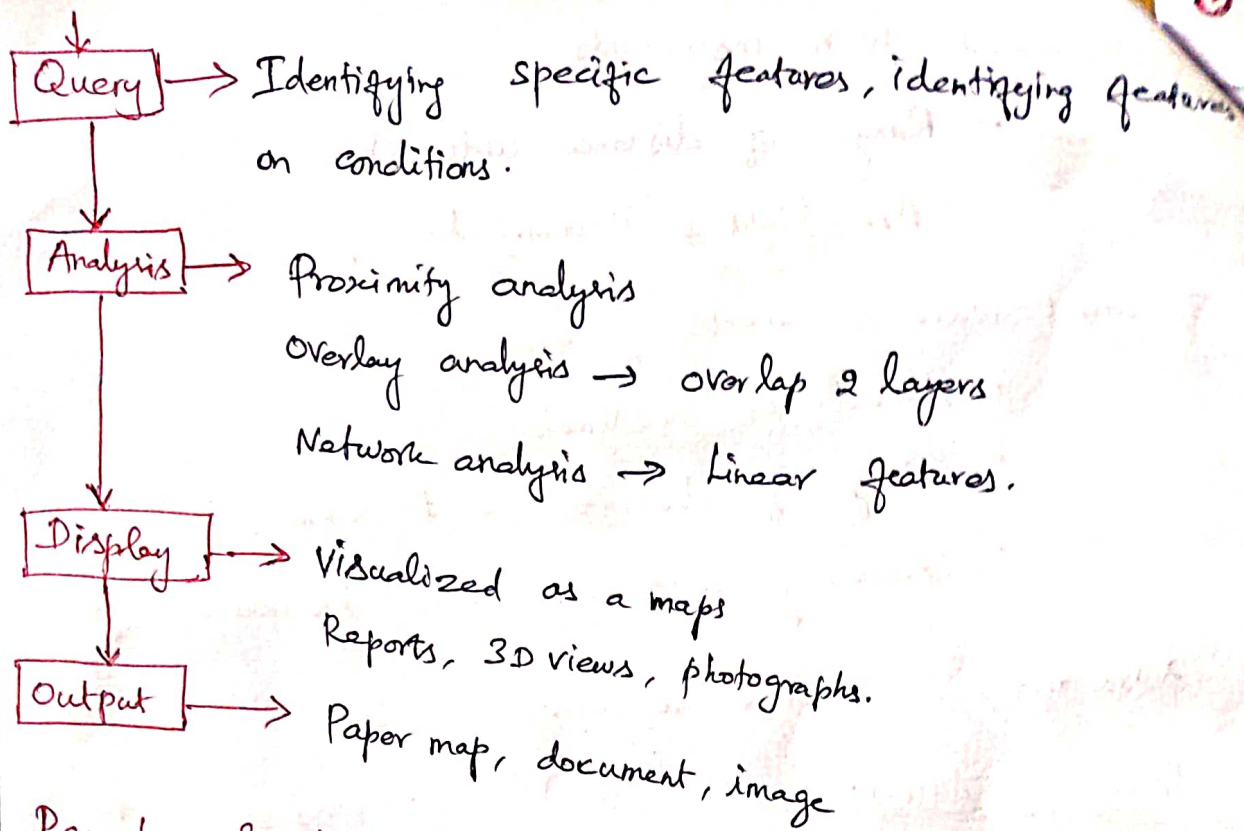 Query → Identifying specific features, identifying features
on conditions.
Analysis → Proximity analysis
Overlay analysis → overlap 2 layers
Network analysis → Linear features.
Display → Visualized as a maps
Reports, 3D views, photographs.
Output → Paper map, document, image